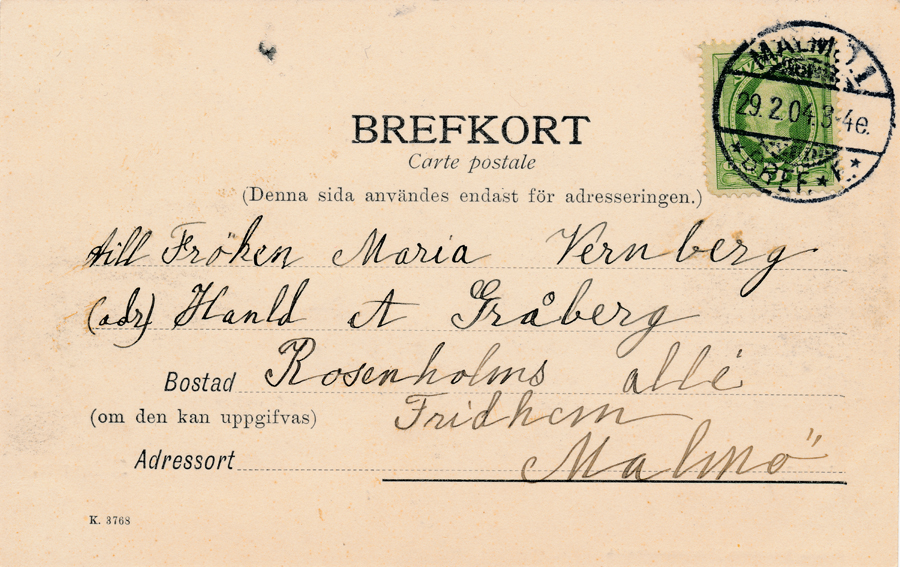 BREFKORT
Carte postale
(Denna sida användes endast för adresseringen.)
MALMÖ 1
29.2.04.3-4e.
★ BREF. ★ F. ★
till Fröken Maria Vernberg
(adr) Hanld A Gråberg
Bostad Rosenholms allé
(om den kan uppgifvas) Fridhem
Adressort Malmö
K. 3768